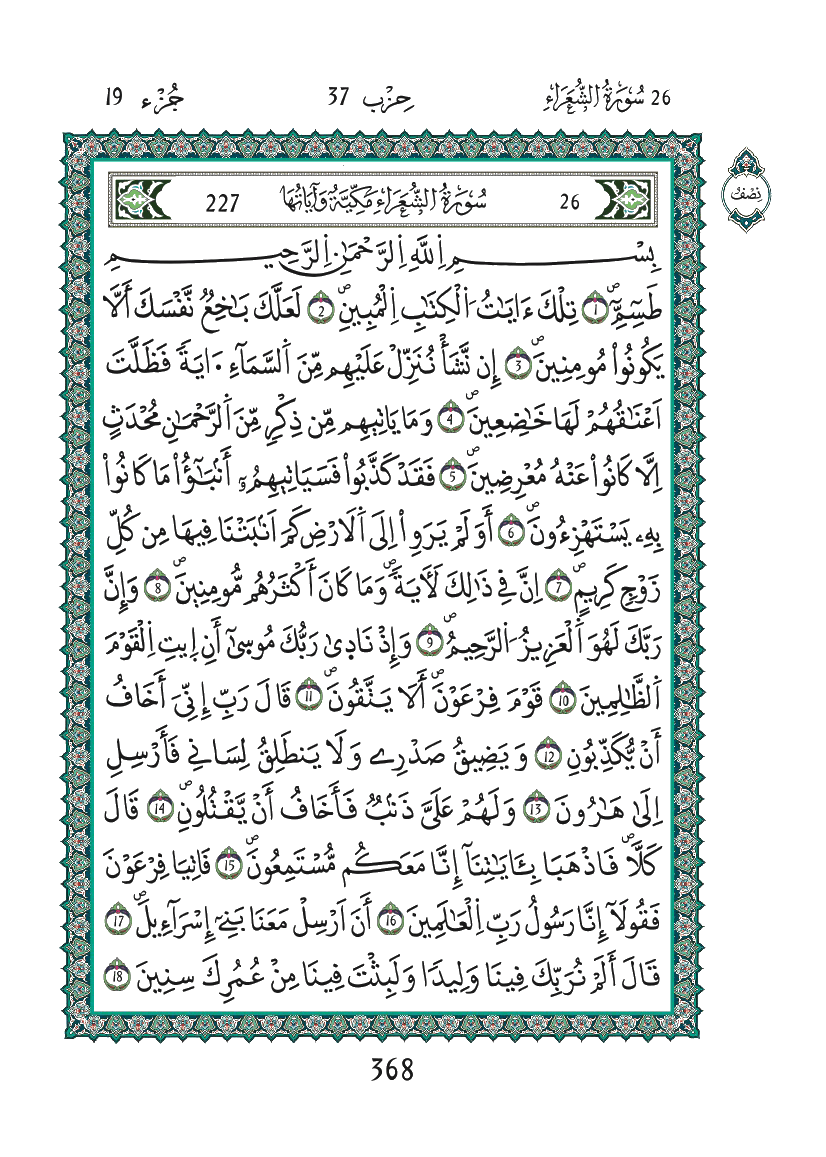 26 سُورَةُ الشُّعَرَاءِ حِزْب 37 جُزْء 19
نِصْفُ
26 سُورَةُ الشُّعَرَاءِ مَكِّيَّةٌ وَءَايَاتُهَا 227
بِسْمِ اِ۬للَّهِ اِ۬لرَّحْمَٰنِ اِ۬لرَّحِيمِ
طَسِٓمِّٓۖ 1 تِلْكَ ءَايَٰتُ اُ۬لْكِتَٰبِ اِ۬لْمُبِينِۖ 2 لَعَلَّكَ بَٰخِعٞ نَّفْسَكَ أَلَّا
يَكُونُواْ مُومِنِينَۖ 3 إِن نَّشَأْ نُنَزِّلْ عَلَيْهِم مِّنَ اَ۬لسَّمَآءِ ا۪يَةٗ فَظَلَّتَ
اَعْنَٰقُهُمْ لَهَا خَٰضِعِينَۖ 4 وَمَا يَاتِيهِم مِّن ذِكْرٖ مِّنَ اَ۬لرَّحْمَٰنِ مُحْدَثٍ
اِلَّا كَانُواْ عَنْهُ مُعْرِضِينَۖ 5 فَقَدْ كَذَّبُواْ فَسَيَاتِيهِمُۥٓ أَنۢبَٰٓؤُاْ مَا كَانُواْ
بِهِۦ يَسْتَهْزِءُونَۖ 6 أَوَلَمْ يَرَوِاْ اِلَى اَ۬لَارْضِ كَمَ اَنۢبَتْنَا فِيهَا مِن كُلِّ
زَوْجٖ كَرِيمٍۖ 7 اِنَّ فِے ذَٰلِكَ لَأٓيَةٗۖ وَمَا كَانَ أَكْثَرُهُم مُّومِنِينَۖ 8 وَإِنَّ
رَبَّكَ لَهُوَ اَ۬لْعَزِيزُ اُ۬لرَّحِيمُۖ 9 وَإِذْ نَادَىٰ رَبُّكَ مُوسَىٰٓ أَنِ اِ۪يتِ اِ۬لْقَوْمَ
اَ۬لظَّٰلِمِينَ 10 قَوْمَ فِرْعَوْنَۖ أَلَا يَتَّقُونَۖ 11 قَالَ رَبِّ إِنِّيَ أَخَافُ
أَنْ يُّكَذِّبُونِ 12 وَيَضِيقُ صَدْرِے وَلَا يَنطَلِقُ لِسَانِے فَأَرْسِلِ
اِلَىٰ هَٰرُونَ 13 وَلَهُمْ عَلَيَّ ذَنۢبٞ فَأَخَافُ أَنْ يَّقْتُلُونِۖ 14 قَالَ
كَلَّاۖ فَاذْهَبَا بِـَٔايَٰتِنَآ إِنَّا مَعَكُم مُّسْتَمِعُونَۖ 15 فَاتِيَا فِرْعَوْنَ
فَقُولَآ إِنَّا رَسُولُ رَبِّ اِ۬لْعَٰلَمِينَ 16 أَنَ اَرْسِلْ مَعَنَا بَنِےٓ إِسْرَآءِيلَۖ 17
قَالَ أَلَمْ نُرَبِّكَ فِينَا وَلِيداٗ وَلَبِثْتَ فِينَا مِنْ عُمُرِكَ سِنِينَ 18
368